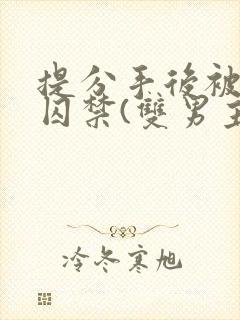 提分手後被
囚禁(雙男主
冷冬寒旭